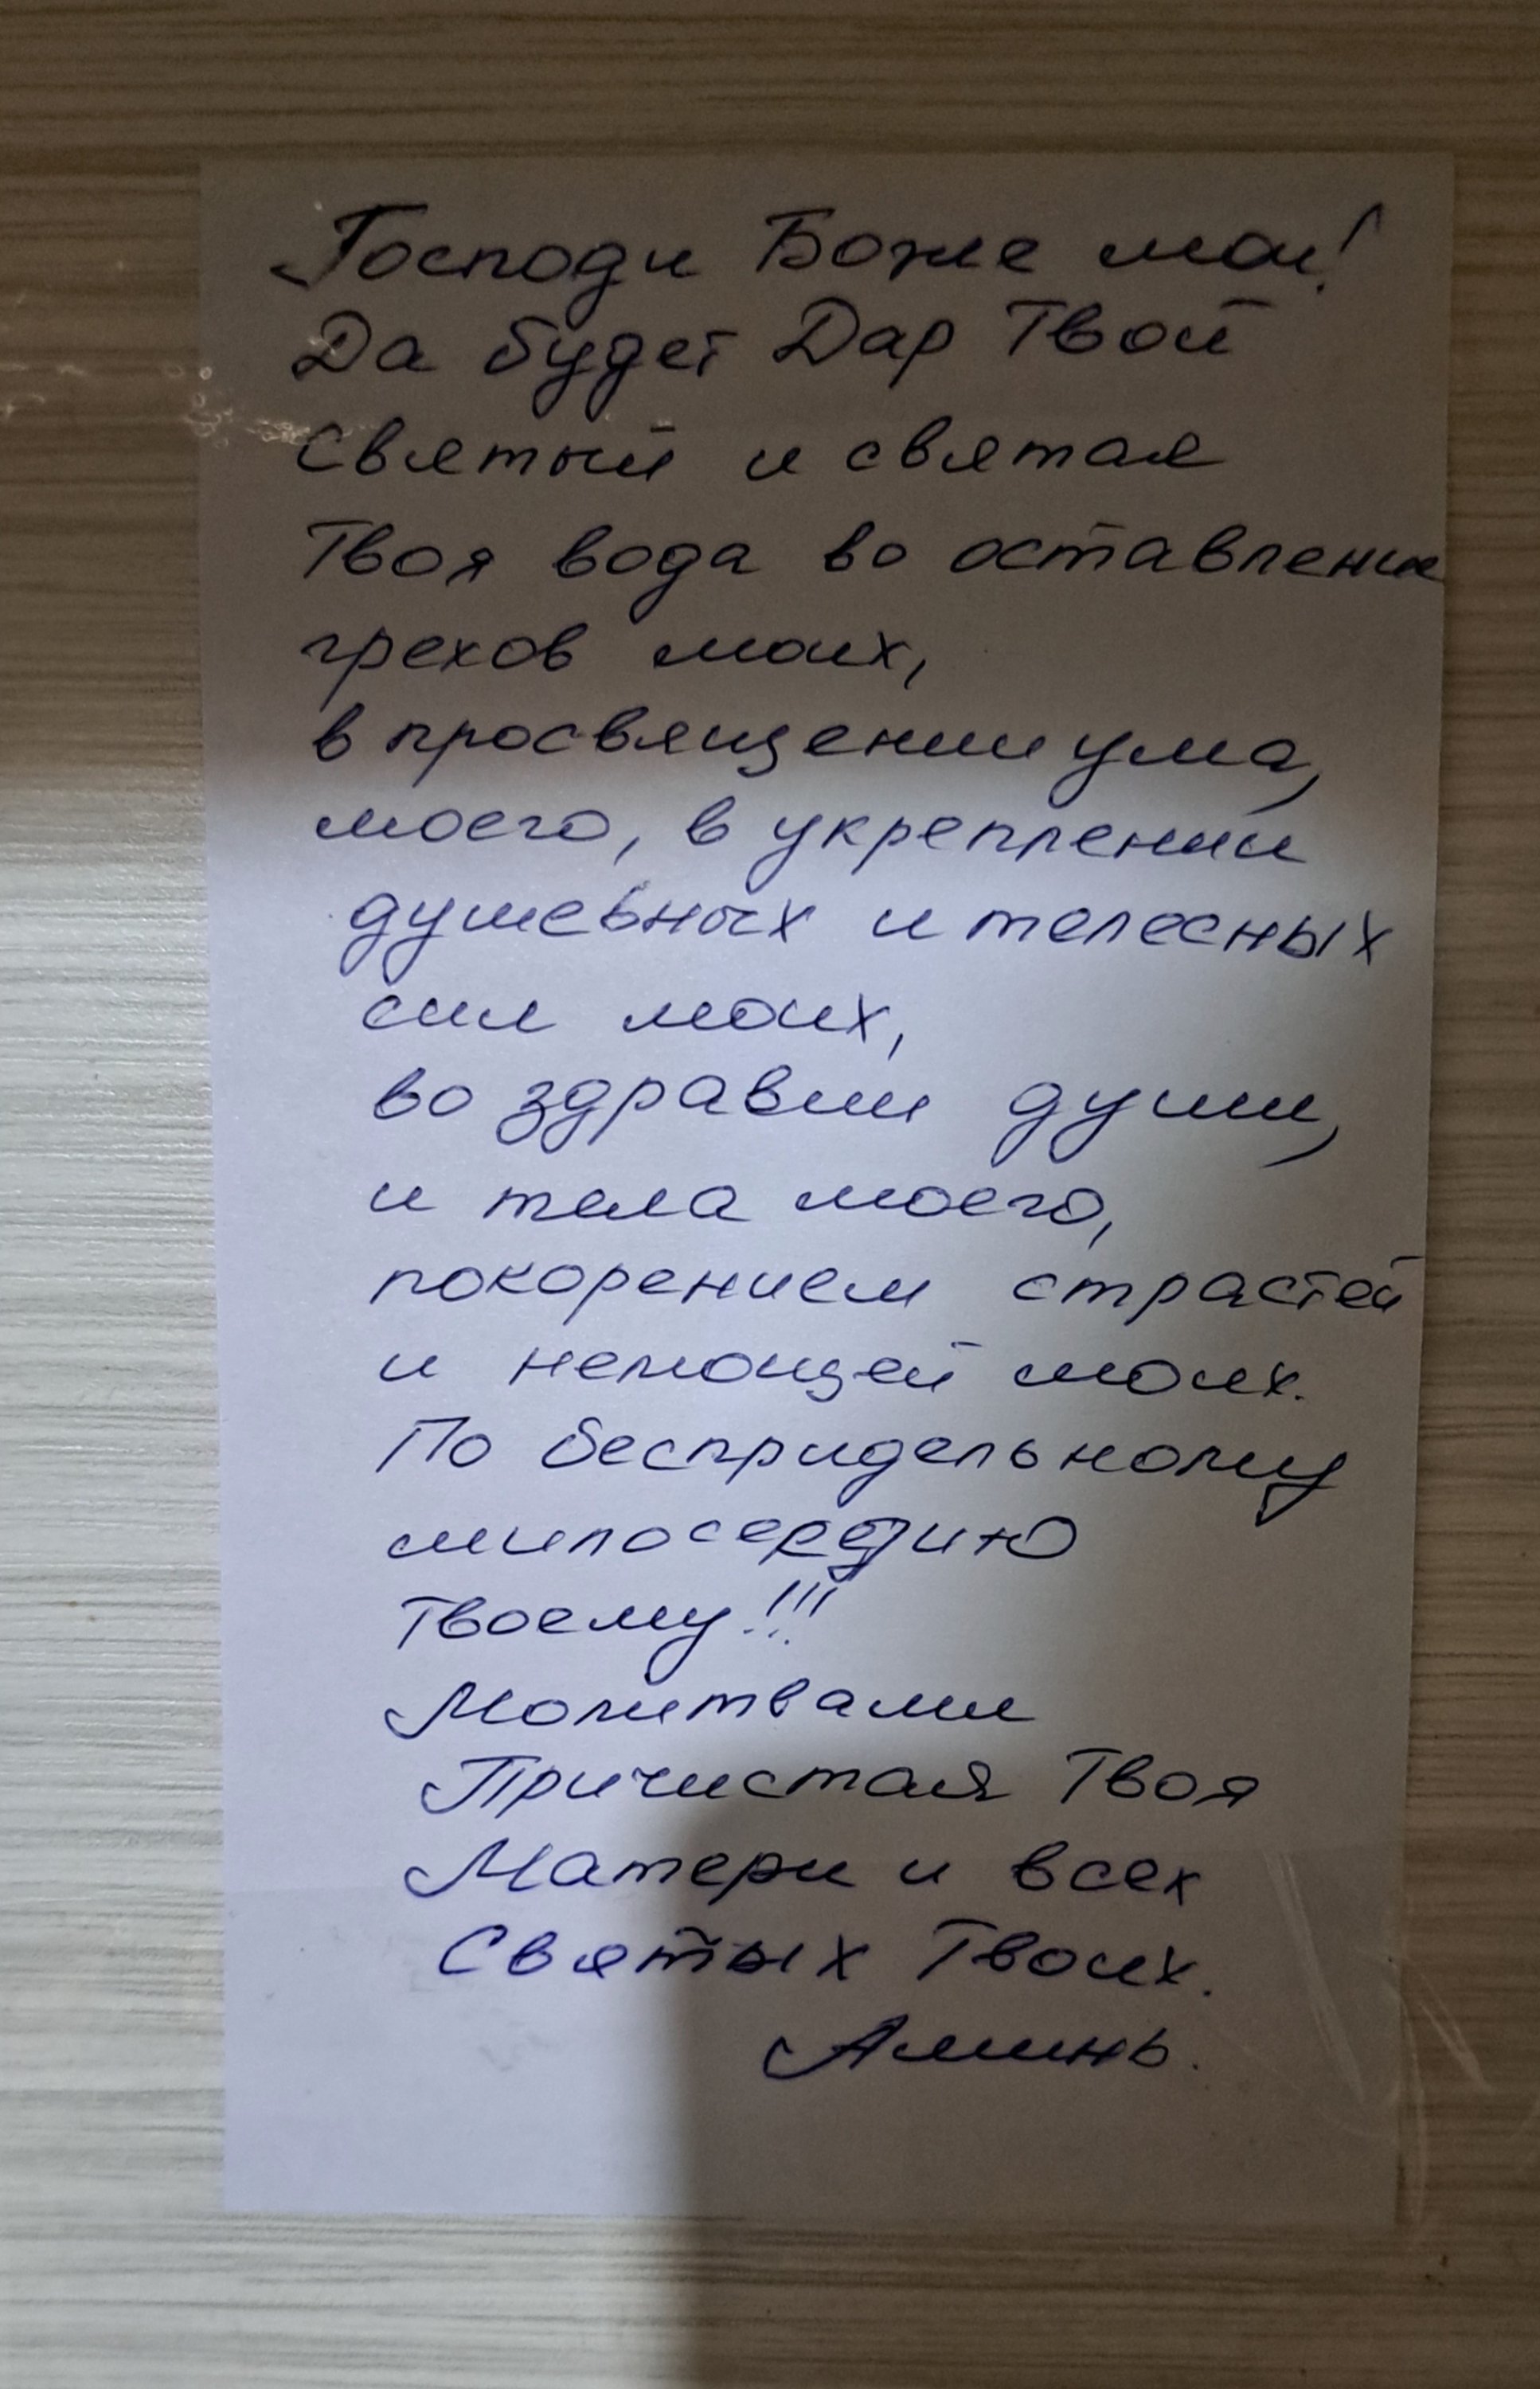 Господи Боже мои!
Да будет Дар Твой
Святый и святая
Твоя вода во оставление
грехов моих,
в просвящении ума,
моего, в укреплении
душевных и телесных
сил моих,
во здравии души,
и тела моего,
покорением страстей
и немощей моих.
По беспридельному
милосердию
Твоему!!!
Молитвами
Причистая Твоя
Матери и всех
Святых Твоих.
Аминь.